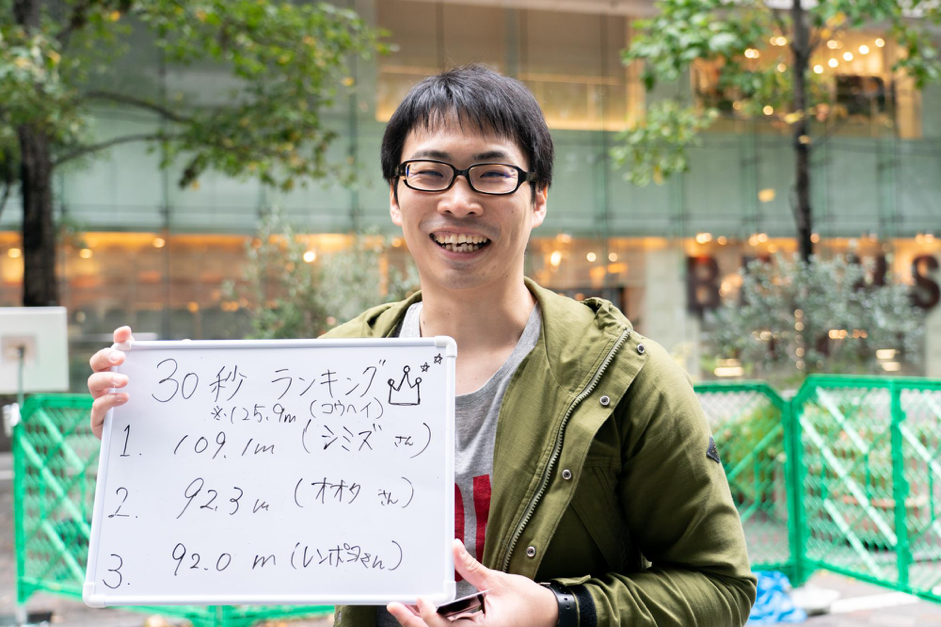 30秒 ランキング
※125.9m (コウヘイ)
1. 109.1m (シミズさん)
2. 92.3m (オオクさん)
3. 92.0m (レンポさん)